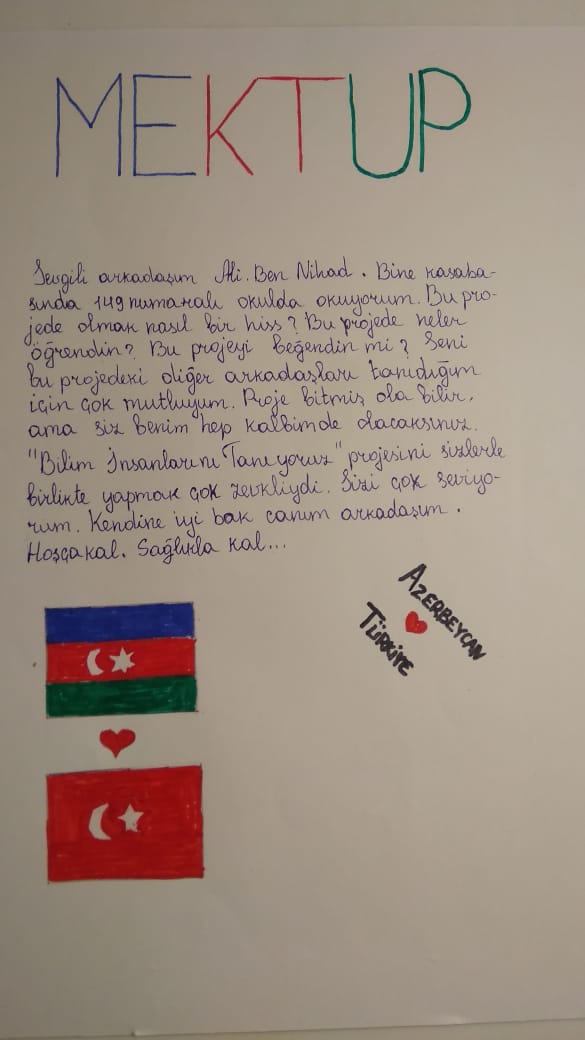 MEKTUP
Sevgili arkadaşım Ali. Ben Nihad. Bine kasaba-
sında 149 numaralı okulda okuyorum. Bu pro-
jede olmak nasıl bir hiss? Bu projede neler
öğrendin? Bu projeyi beğendin mi? Seni
bu projedeki diğer arkadaşları tanıdığım
için çok mutluyum. Proje bitmiş ola bilir,
ama siz benim hep kalbimde olacaksınız.
"Bilim İnsanlarını Tanıyoruz" projesini sizlerle
birlikte yapmak çok zevkliydi. Sizi çok seviyo-
rum. Kendine iyi bak canım arkadaşım.
Hoşçakal. Sağlıkla kal...
AZERBEYCAN
TÜRKİYE